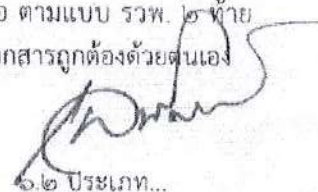 ตามแบบ รวพ. ๒ ท้าย
กสารถูกต้องด้วยตนเอง
๖.๒ ประเภท...